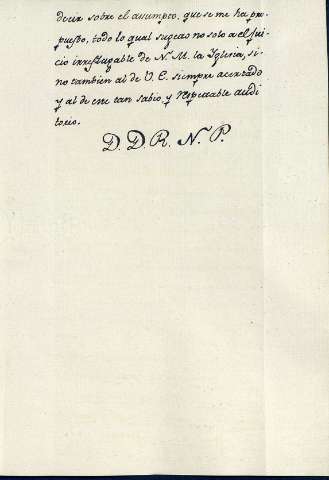 decir sobre el assumpto, que se me ha pro-
puesto, todo lo qual sugeto no solo a el Jui-
cio irrefragable de N.ª M. la Yglesia, si-
no tambien al de V. E. siempre acertado
y al de este tan sabio y respectable audi
torio.
D. D. R. N. P.